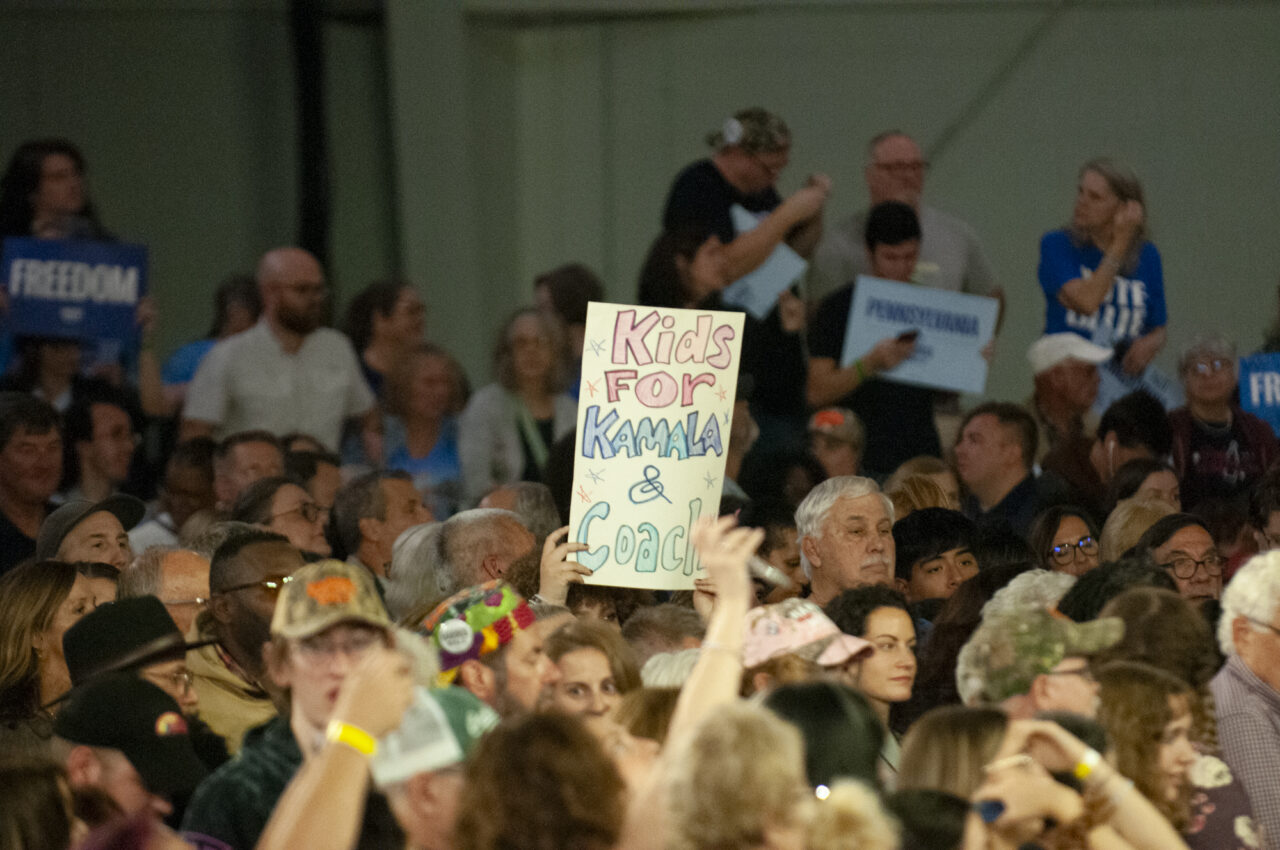 FREEDOM
Kids
For
KAMALA
&
Coach
PENNSYLVANIA